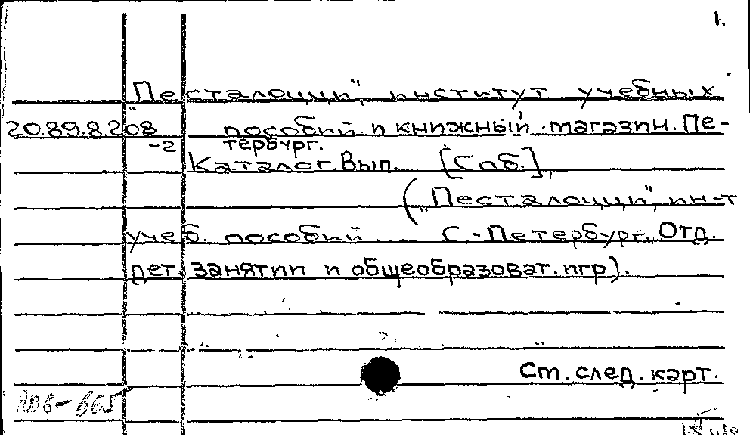 1.
„Песталоцци", институт учебных
20.89.8.208 пособий и книжный магазин. Пе-
-2 тербург.
Каталог. Вып. ... [Спб.],
(„Песталоцци", ин-т
учеб. пособий ... С.-Петербург. Отд.
дет. занятий и общеобразоват. игр).
Ст. след. карт.